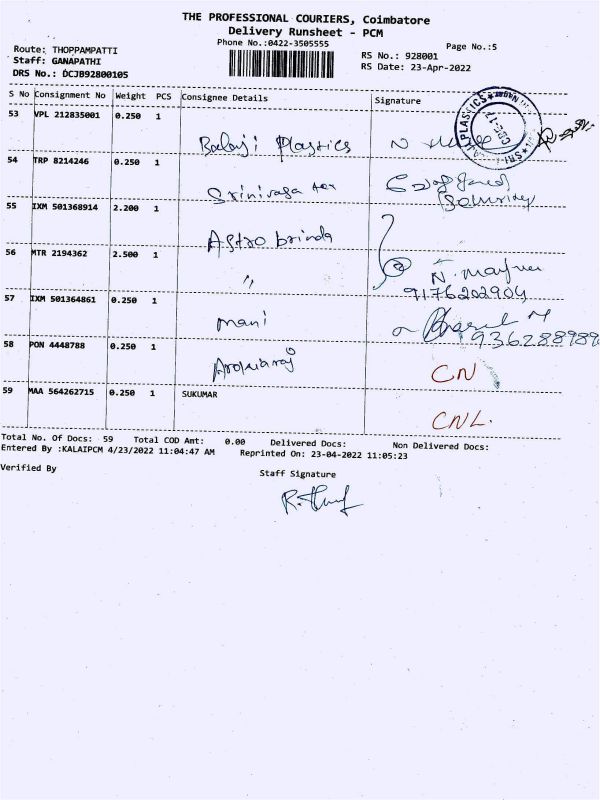 THE PROFESSIONAL COURIERS, Coimbatore
Delivery Runsheet - PCM
Phone No.:0422-3505555
Page No.:5
Route: THOPPAMPATTI
Staff: GANAPATHI
DRS No.: DCJB92800105
RS No.: 928001
RS Date: 23-Apr-2022
S No Consignment No Weight PCS Consignee Details Signature
53 VPL 212835001 0.250 1
Balaji Plastics N
54 TRP 8214246 0.250 1
Srinivasa tex
55 IXM 501368914 2.200 1
Astro brinda
56 MTR 2194362 2.500 1
〃 N.
9176202904
57 IXM 501364861 0.250 1
mani
936288989
58 PON 4448788 0.250 1
Arokiaraj CN
59 MAA 564262715 0.250 1 SUKUMAR
CNL.
Total No. Of Docs: 59 Total COD Amt: 0.00 Delivered Docs: Non Delivered Docs:
Entered By :KALAIPCM 4/23/2022 11:04:47 AM Reprinted On: 23-04-2022 11:05:23
Verified By
Staff Signature